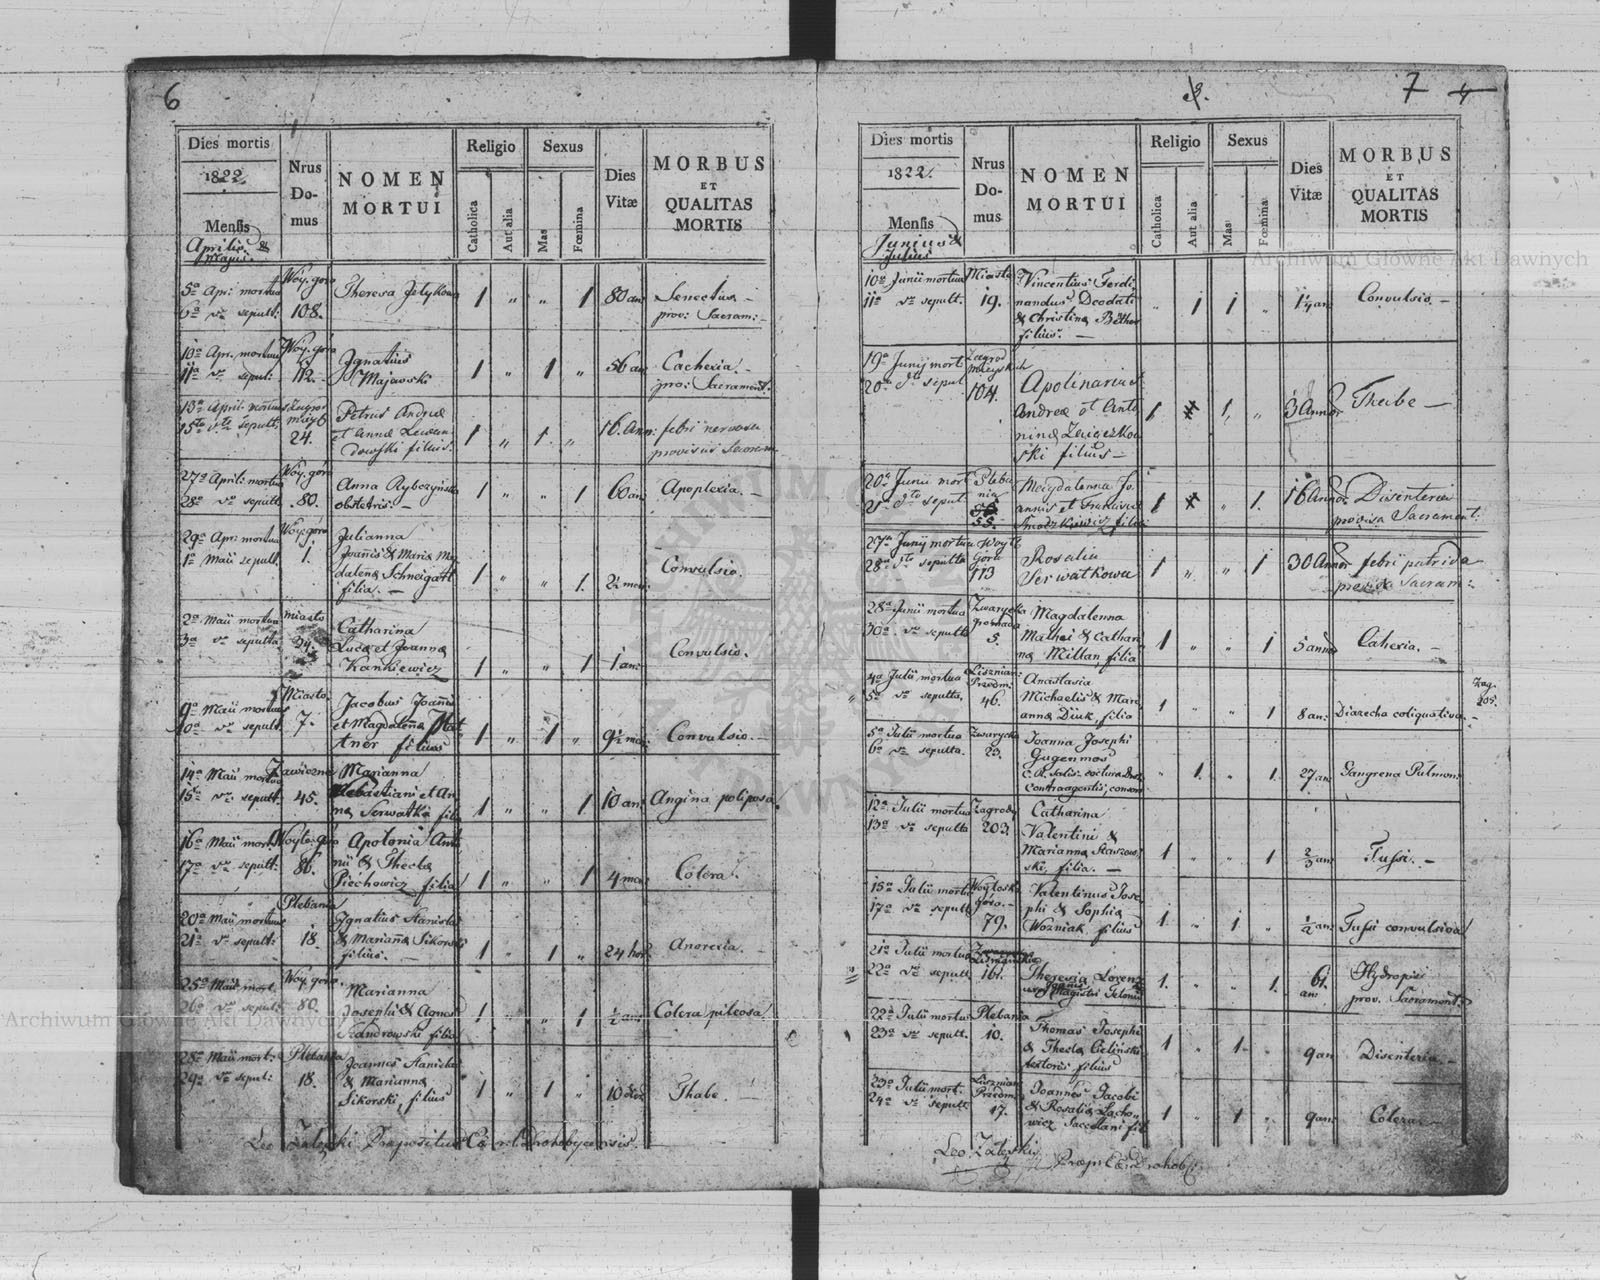 6
Dies mortis
1822.
Mensis
Aprilis &
Majus.
Nrus
Do-
mus
NOMEN
MORTUI
Religio
Catholica
Aut alia
Sexus
Mas
Fœmina
Dies
Vitæ
MORBUS
ET
QUALITAS
MORTIS
5a Apr: mortua
6a do sepult:
Woy: gora
108.
Theresa
1 " " 1
80 an:
Senectus. –
prov: Sacram: –
10a Apr. mortuus
11a do sepult:
Woy: gora
112.
Ignatius
Majewski
1 " 1 "
56 an:
Cachexia. –
pro: Sacrament:
13a April: mortuus
15to do sepult:
24.
Petrus Andreæ
et Annæ Lewan
dowski filius.
1 " 1. "
16. Ann:
febri nervosa
provisus Sacram
27a April: mortua
28a do sepult:
Woy: gora
80.
Anna Rybczyńska
obstetrix. –
1 " " 1
60 an:
Apoplexia. –
29a Apr: mortua
1a Maii sepult.
Woy: gora
1.
Julianna
Joannis & Maria Mag
dalena Schneigatt
filia. –
1 " " 1.
2½ men:
Convulsio.
2a Maii mortua
3a do sepulta:
miasto
24.
Catharina
Lucæ et Joannæ
Kankiewicz
1 " " 1
1 an:
Convulsio.
9a Maii mortuus
10a do sepult.
Miasto
7.
Jacobus Joannis
et Magdalenæ
tner filius
1 " 1 "
9½ men:
Convulsio. –
14a Maii mortua
15a do sepult.
Zawiezna
45.
Marianna
Sebastiani et An
næ Serwatka filia
1 " " 1
10 an:
Angina poliposa.
16a Maii mort.
17a do sepult:
86.
Apolonia Anto
nii & Theclæ
Piechowicz filia
1 " " 1
4 men:
Colera.
20a Maii mortuus
21a do sepult:
Plebania
18.
Ignatius Stanislai
& Marianæ Sikorski
filius. –
1 " 1 "
24 hor:
Anorexia. –
25a Maii mort.
26a do sepult:
Woy: gora.
80.
Marianna
Josephi & Agnes
filia
1 " " 1
½ an:
Colera pileosa.
28a Maii mort:
29a do sepul:
Plebania
18.
Joannes Stanislai
& Marianna
Sikorski, filius
1 " 1 "
10 dies
Thabe. –
Leo Zaleski Præpositus Drohobycensis
3.
7 4
Dies mortis
1822.
Mensis
Junius &
Julius
Nrus
Do-
mus
NOMEN
MORTUI
Religio
Catholica
Aut alia
Sexus
Mas
Fœmina
Dies
Vitæ
MORBUS
ET
QUALITAS
MORTIS
10a Junii mortuus
11a do sepult.
Miasto
19.
Vincentius Ferdi
nandus Deodati
& Christina
filius. –
" 1 1 "
1¼ an:
Convulsio. –
19a Junij mort
20a do sepul
Zagrod
Mieyskich
104.
Apolinarius
Andreæ et Anto
ninæ
ski filius –
1 1. "
3 Annor
Thabe –
20a Junii mort
21a do sepult.
Pleba
nia
55.
Magdalenna Jo
annis et Franciscæ
filia
1 " 1.
16 Annor
Disenteria
provisa Sacrament:
27a Junij mortua
28a do sepulta
Woyto
Gora
113
Rosalia
Serwatkowa
1 " " 1
30 Annor
febri putrida
provisa Sacram:
28a Junii mortua
30a do sepulta
Zwarycka
gromada
5.
Magdalenna
Mathei & Cathari
næ Millan, filia
1 " " 1
5 annor
Cahexia. –
4a Julii mortua
5a do sepulta.
Liszniań:
Przedm:
46.
Anastasia
Michaelis & Mari
annæ Diuk, filia
1 " " 1
8 an:
Diarecha coliquativa. –
Zag.
205.
5a Julii mortua
6a do sepulta.
Zwarycka
23.
Joanna Josephi
Gugenmos
Contraagentis, consors
" 1. " 1.
27 an:
Gangrena Pulmon:
12a Julii mortua
13a do sepulta
Zagrody
203.
Catharina
Valentini &
Mariannæ Staszow
ski, filia. –
1 " " 1
⅔ an:
Tussi. –
15a Julii mortu
17a do sepult
Woytoska
gora. –
79.
Valentinus Jose
phi & Sophiæ
Wozniak filius
1. " 1 "
½ an:
Tussi convulsiva.
21a Julii mortua
22a do sepult.
161.
Theresia Lorenz
Magistri Telonii
1. " " 1.
61.
an:
Hydropsi
prov. Sacrament:
22a Julii mortuus
23a do sepult.
Plebania
10.
Thomas Josephi
& Theclæ Cieliński
textoris filius
1 " 1. "
9 an:
Disenteria. –
23a Julii mort.
24a do sepult
Liszniań:
Przedm:
17.
Joannes Jacobi
& Rosaliæ Lacho
wicz filius
1 " 1 "
9 an:
Colera. –
Leo Zaleski
Præp: Drohob:
Archiwum Główne Akt Dawnych
Archiwum Główne Akt Dawnych